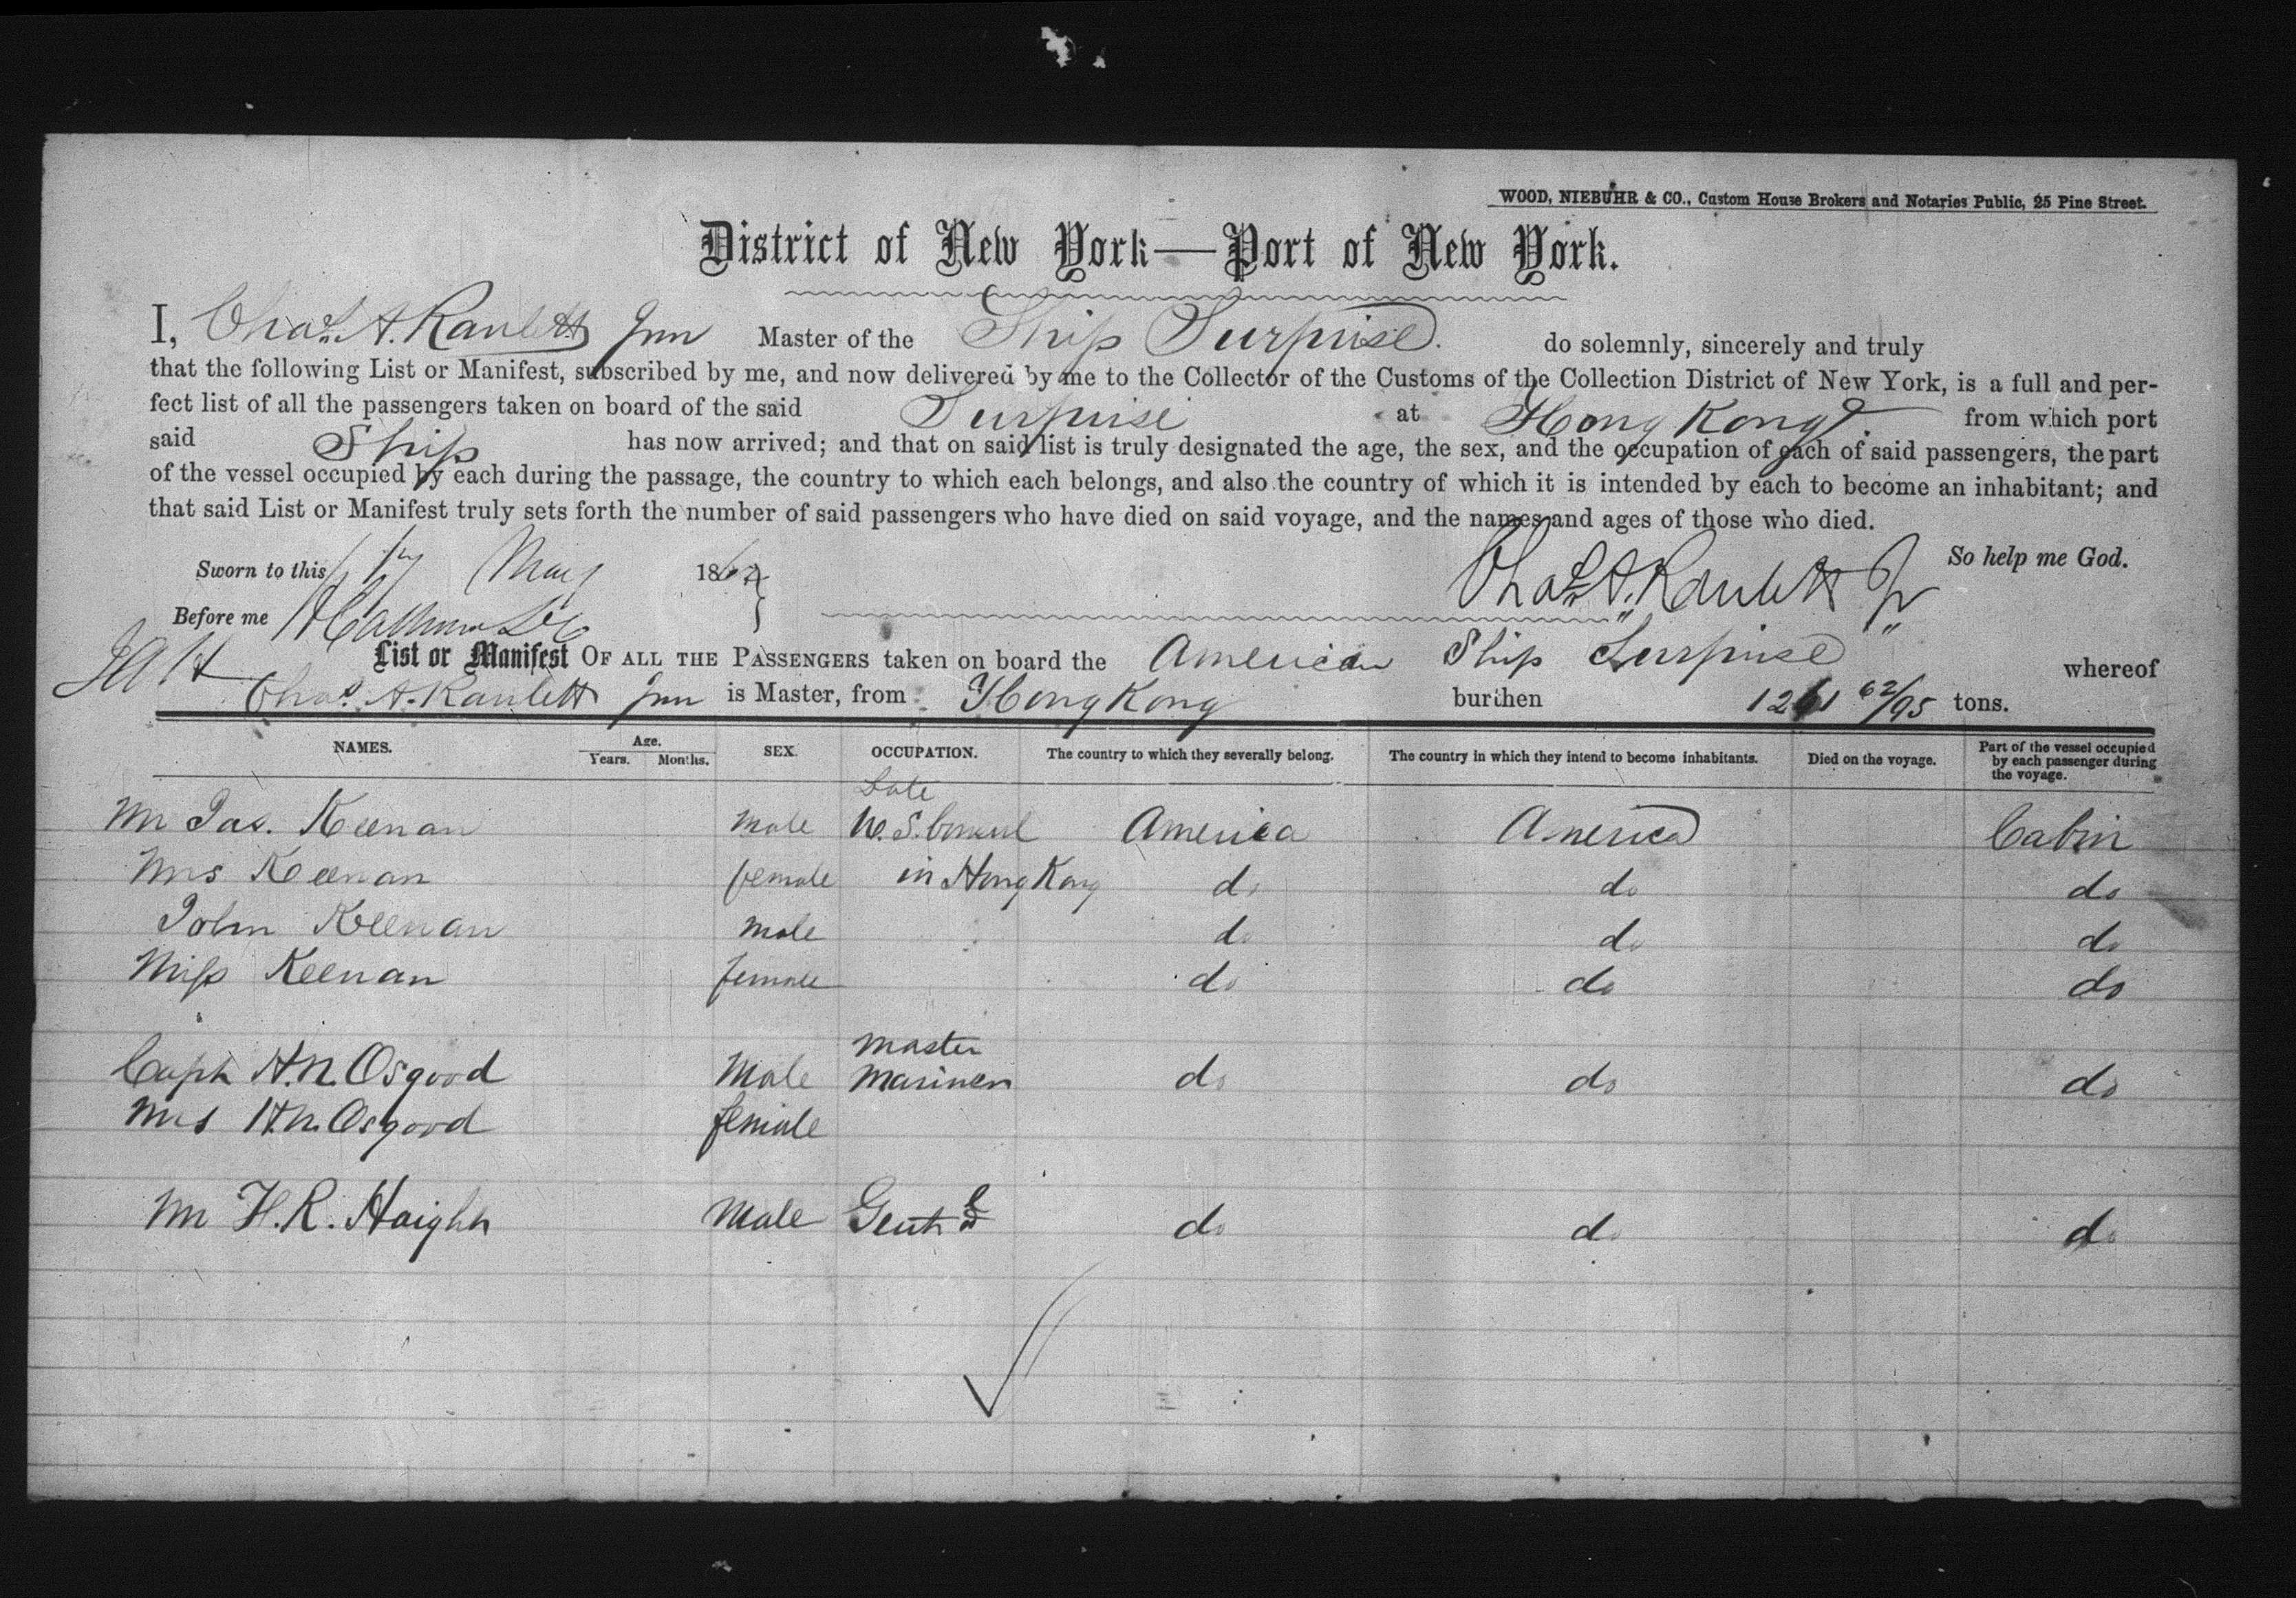 WOOD, NIEBUHR & CO., Custom House Brokers and Notaries Public, 25 Pine Street.
District of New York—Port of New York.
I, Chas. A. Ranlett Jun Master of the Ship Surprise. do solemnly, sincerely and truly
that the following List or Manifest, subscribed by me, and now delivered by me to the Collector of the Customs of the Collection District of New York, is a full and per-
fect list of all the passengers taken on board of the said Surprise at Hong Kong from which port
said Ship has now arrived; and that on said list is truly designated the age, the sex, and the occupation of each of said passengers, the part
of the vessel occupied by each during the passage, the country to which each belongs, and also the country of which it is intended by each to become an inhabitant; and
that said List or Manifest truly sets forth the number of said passengers who have died on said voyage, and the names and ages of those who died.
So help me God.
Sworn to this 17 May 186 Chas. A. Ranlett Jr
Before me
List or Manifest OF ALL THE PASSENGERS taken on board the American Ship Surprise whereof
Chas. A. Ranlett Jun is Master, from Hong Kong burthen 1261 62/95 tons.
NAMES. Age. Years. Months. SEX. OCCUPATION. The country to which they severally belong. The country in which they intend to become inhabitants. Died on the voyage. Part of the vessel occupied by each passenger during the voyage.
Late
Mr Jas. Keenan Male U.S. Consul America America Cabin
Mrs Keenan female in Hong Kong do do do
John Keenan Male do do do
Miss Keenan female do do do
Master
Capt H.N. Osgood Male Mariner do do do
Mrs H.N. Osgood female
Mr H.R. Haight Male Gent do do do